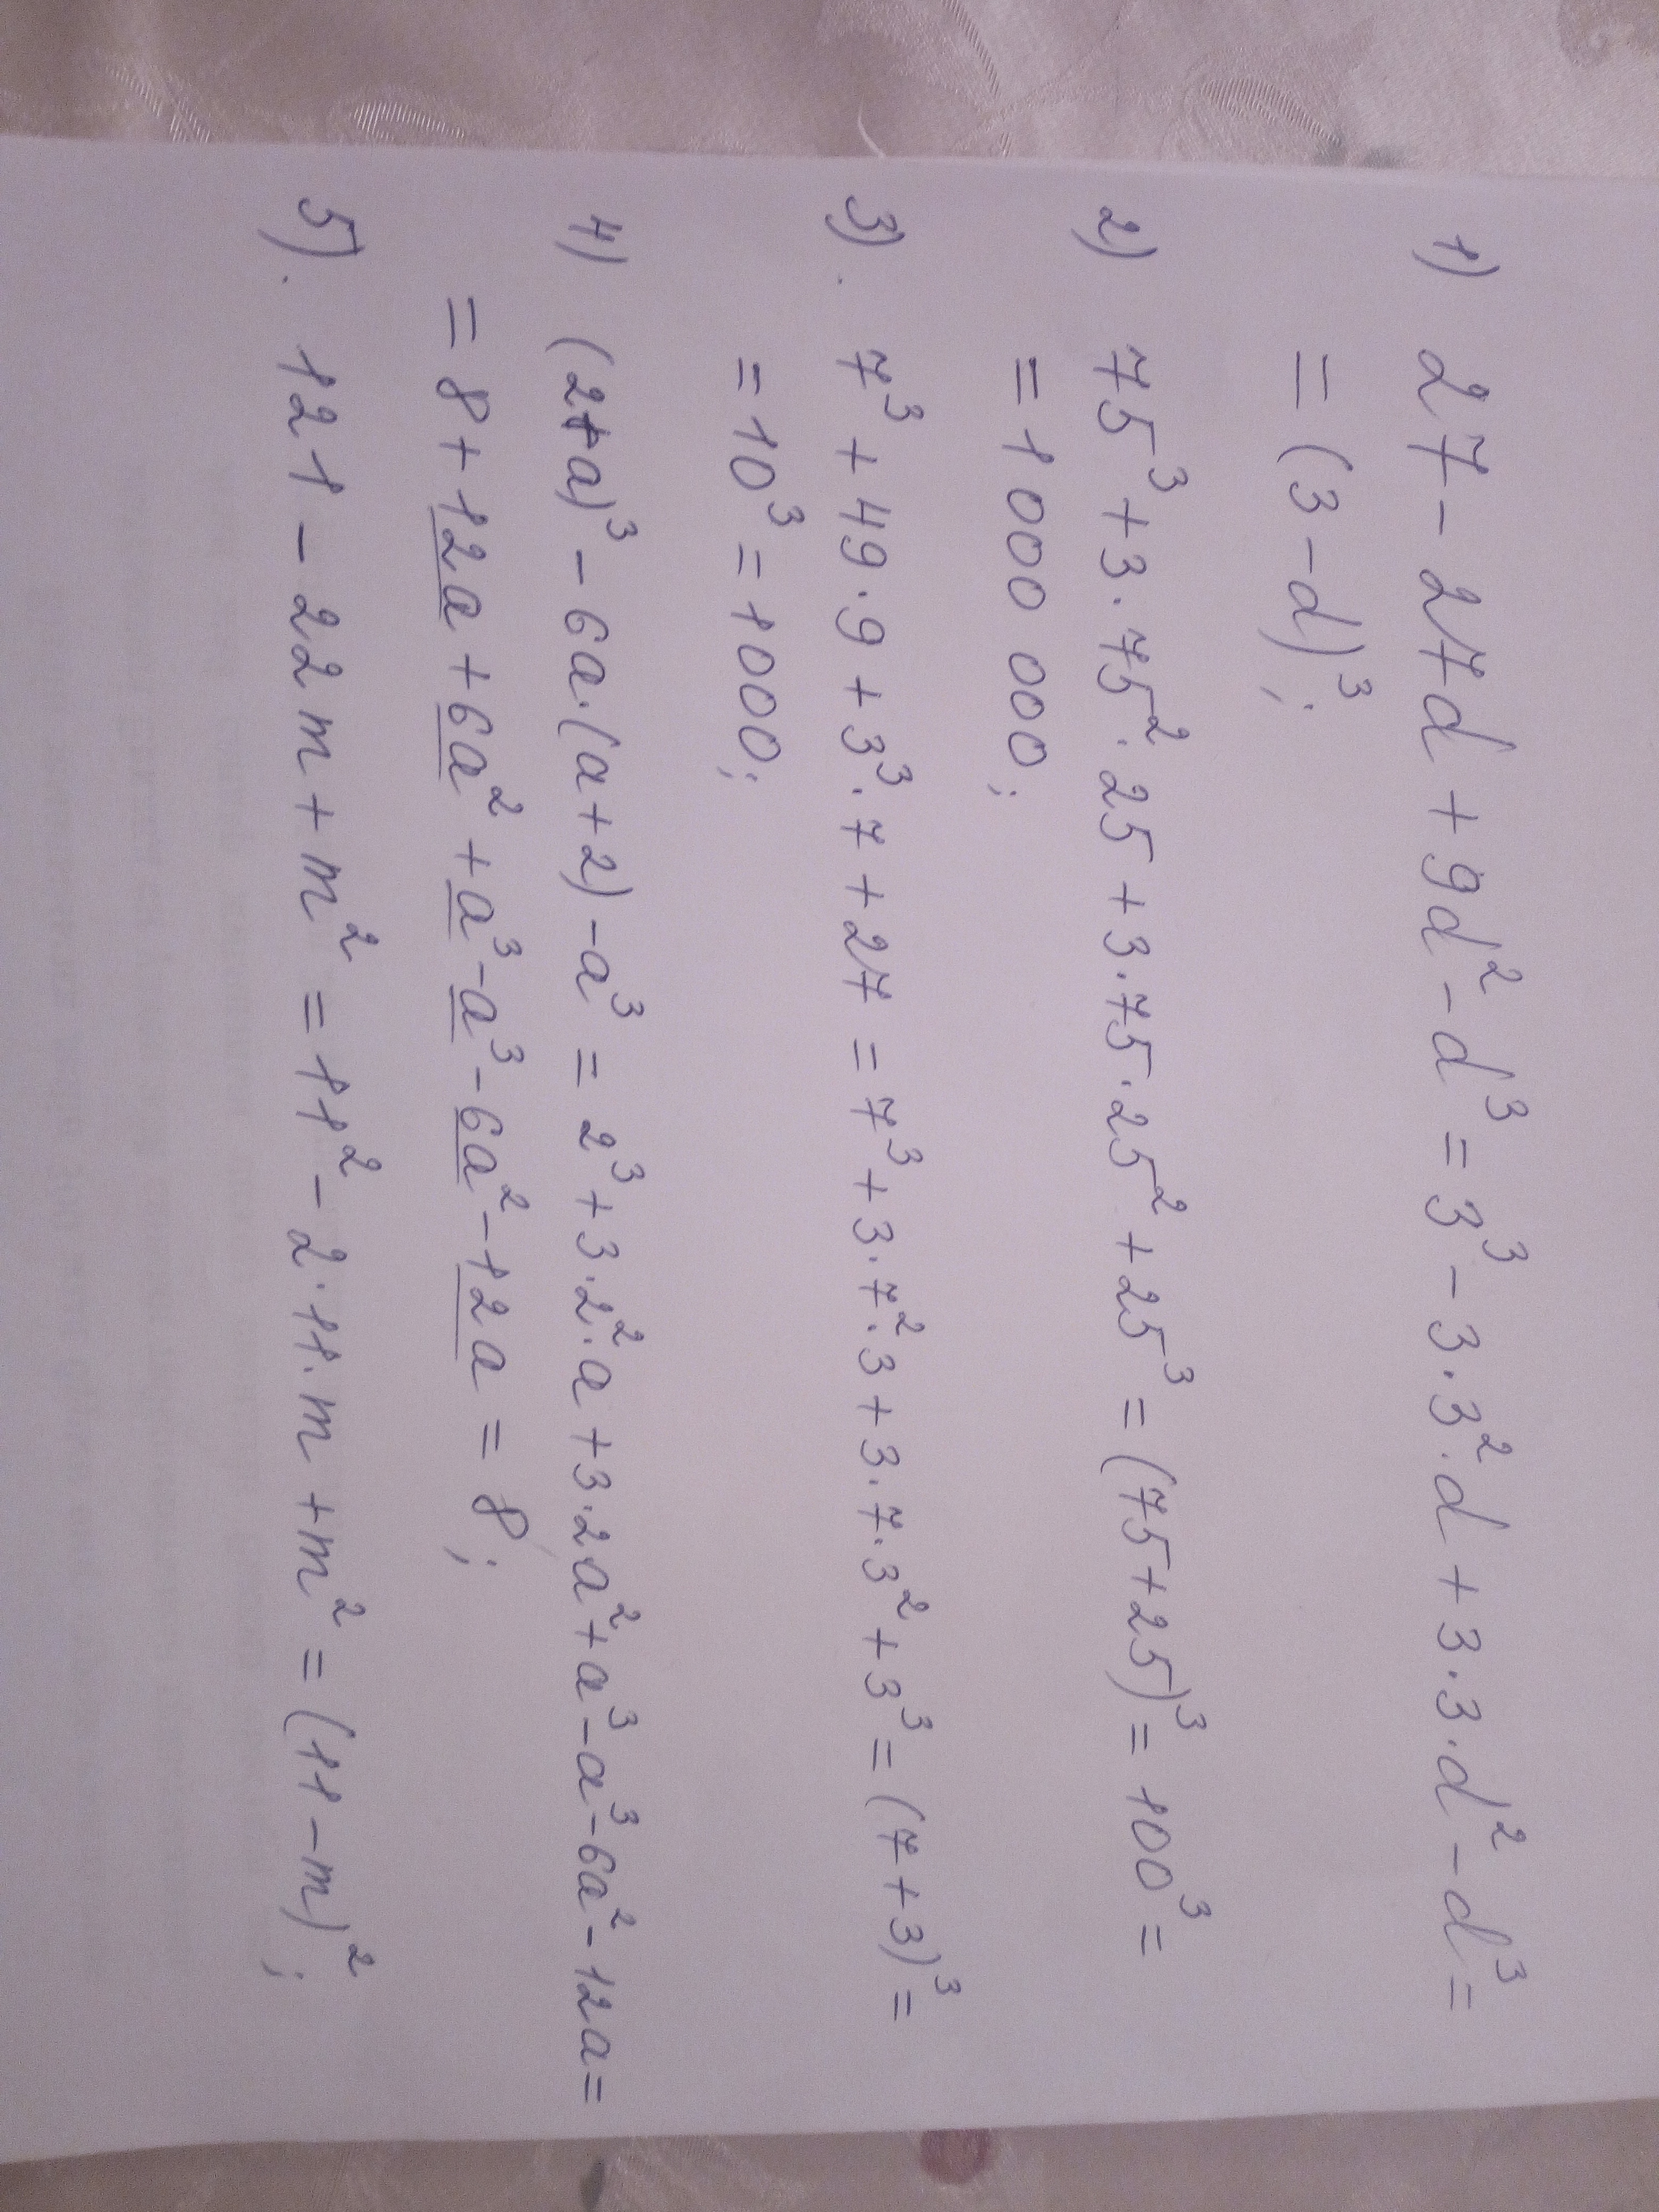 1) 27 - 27d + 9d² - d³ = 3³ - 3·3²·d + 3·3·d² - d³ =
= (3-d)³;
2) 75³ + 3·75²·25 + 3·75·25² + 25³ = (75+25)³ = 100³ =
= 1 000 000;
3). 7³ + 49·9 + 3³·7 + 27 = 7³ + 3·7²·3 + 3·7·3² + 3³ = (7+3)³ =
= 10³ = 1000;
4) (2+a)³ - 6a·(a+2) - a³ = 2³ + 3·2²·a + 3·2a² + a³ - a³ - 6a² - 12a =
= 8 + 12a + 6a² + a³ - a³ - 6a² - 12a = 8;
5). 121 - 22m + m² = 11² - 2·11·m + m² = (11-m)²;